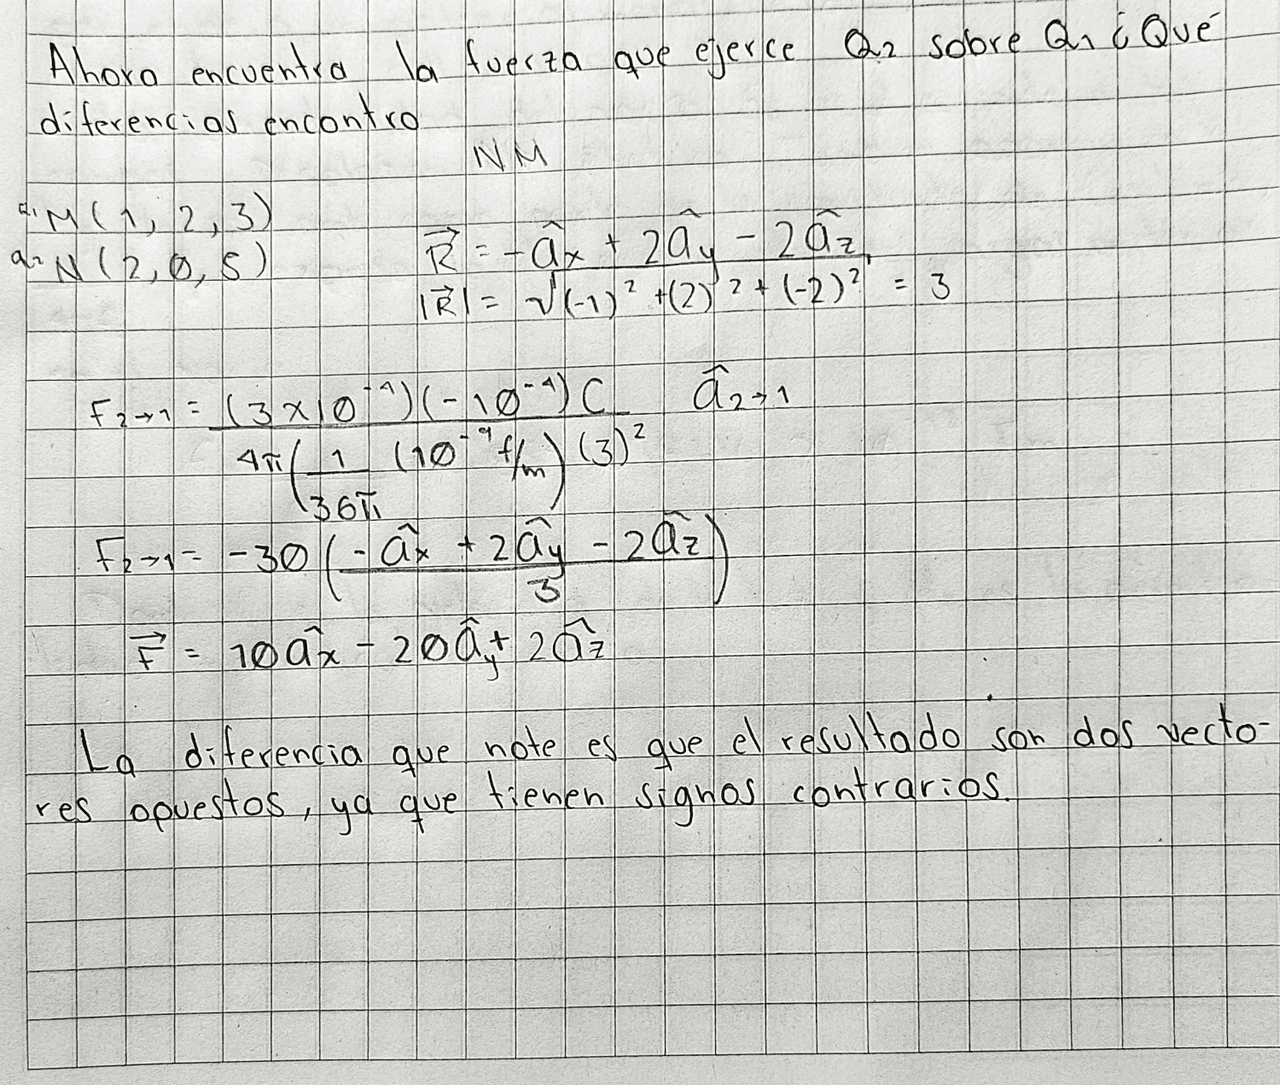 Ahora encuentra la fuerza que ejerce Q₂ sobre Q₁ ¿Qué
diferencias encontro
NM
Q₁ M(1, 2, 3)
Q₂ N(2, 0, 5)
R⃗ = -âx + 2ây - 2âz
|R⃗| = √(-1)² + (2)² + (-2)² = 3
F₂→₁ = (3x10⁻⁴)(-10⁻⁴)C / 4π(1/36π (10⁻⁹ f/m)(3)² â₂→₁
F₂→₁ = -30(-âx + 2ây - 2âz / 3)
F⃗ = 10âx - 20ây + 2âz
La diferencia que note es que el resultado son dos vecto-
res opuestos, ya que tienen signos contrarios.